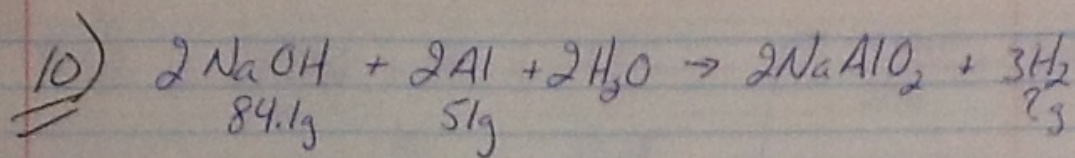 10) 2NaOH + 2Al + 2H₂O → 2NaAlO₂ + 3H₂
84.1g 51g ?g